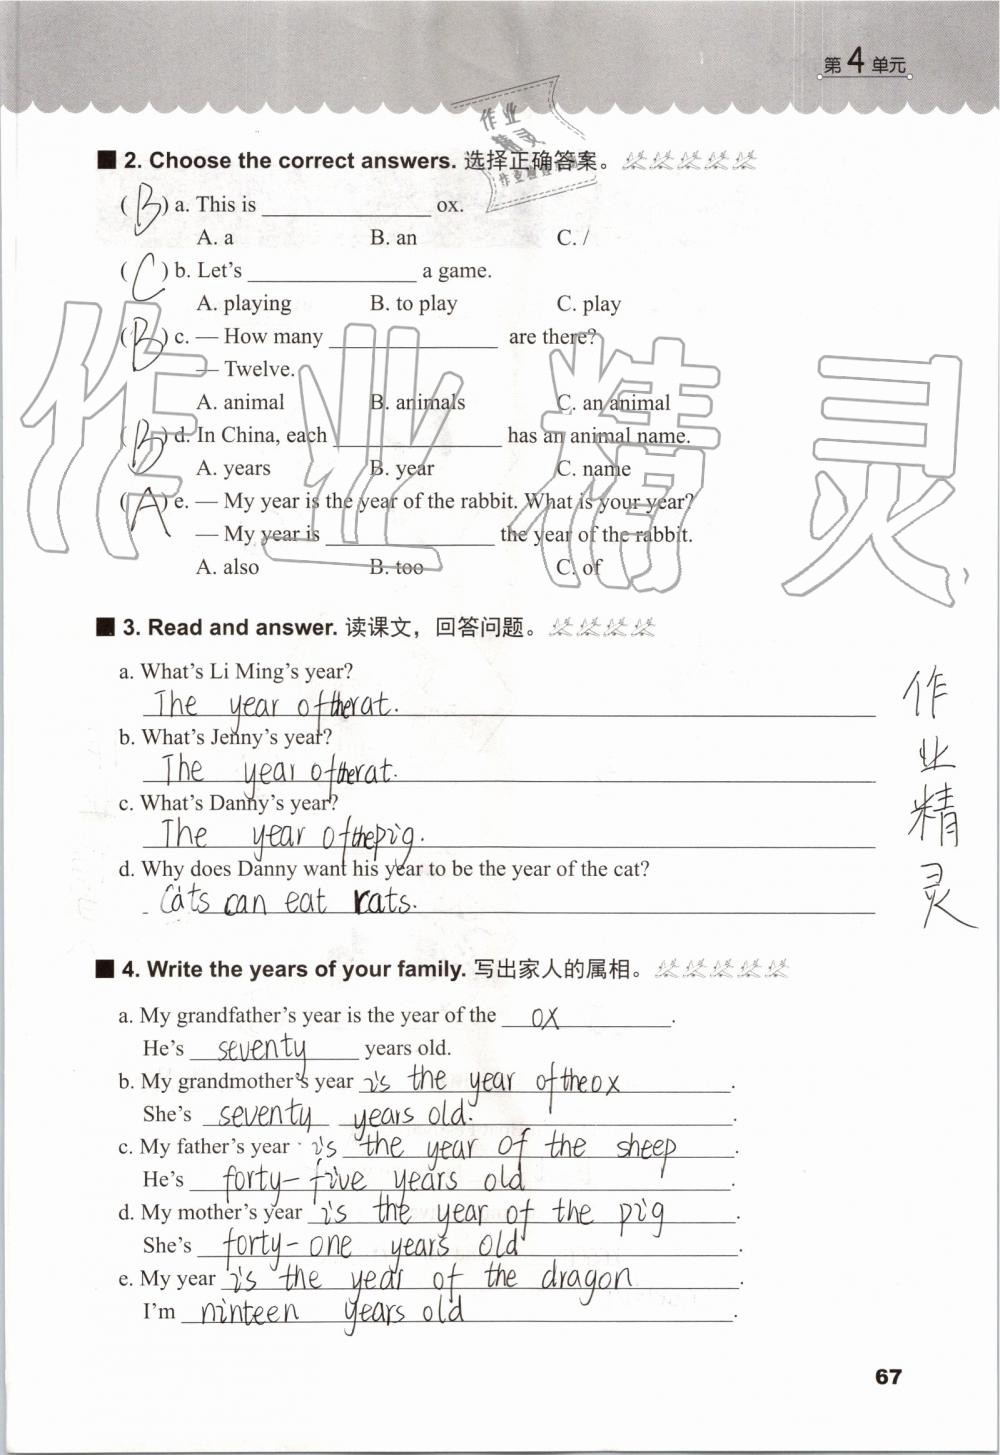 第4单元
作业
精灵
■ 2. Choose the correct answers. 选择正确答案。
( B ) a. This is ______ ox.
A. a B. an C. /
( C ) b. Let's ______ a game.
A. playing B. to play C. play
( B ) c. — How many ______ are there?
— Twelve.
A. animal B. animals C. an animal
( B ) d. In China, each ______ has an animal name.
A. years B. year C. name
( A ) e. — My year is the year of the rabbit. What is your year?
— My year is ______ the year of the rabbit.
A. also B. too C. of
作业精灵
■ 3. Read and answer. 读课文，回答问题。
a. What's Li Ming's year?
The year of the rat.
b. What's Jenny's year?
The year of the rat.
c. What's Danny's year?
The year of the pig.
d. Why does Danny want his year to be the year of the cat?
Cats can eat rats.
作业精灵
■ 4. Write the years of your family. 写出家人的属相。
a. My grandfather's year is the year of the ox.
He's seventy years old.
b. My grandmother's year is the year of the ox.
She's seventy years old.
c. My father's year is the year of the sheep.
He's forty-five years old.
d. My mother's year is the year of the pig.
She's forty-one years old.
e. My year is the year of the dragon.
I'm ninteen years old.
67